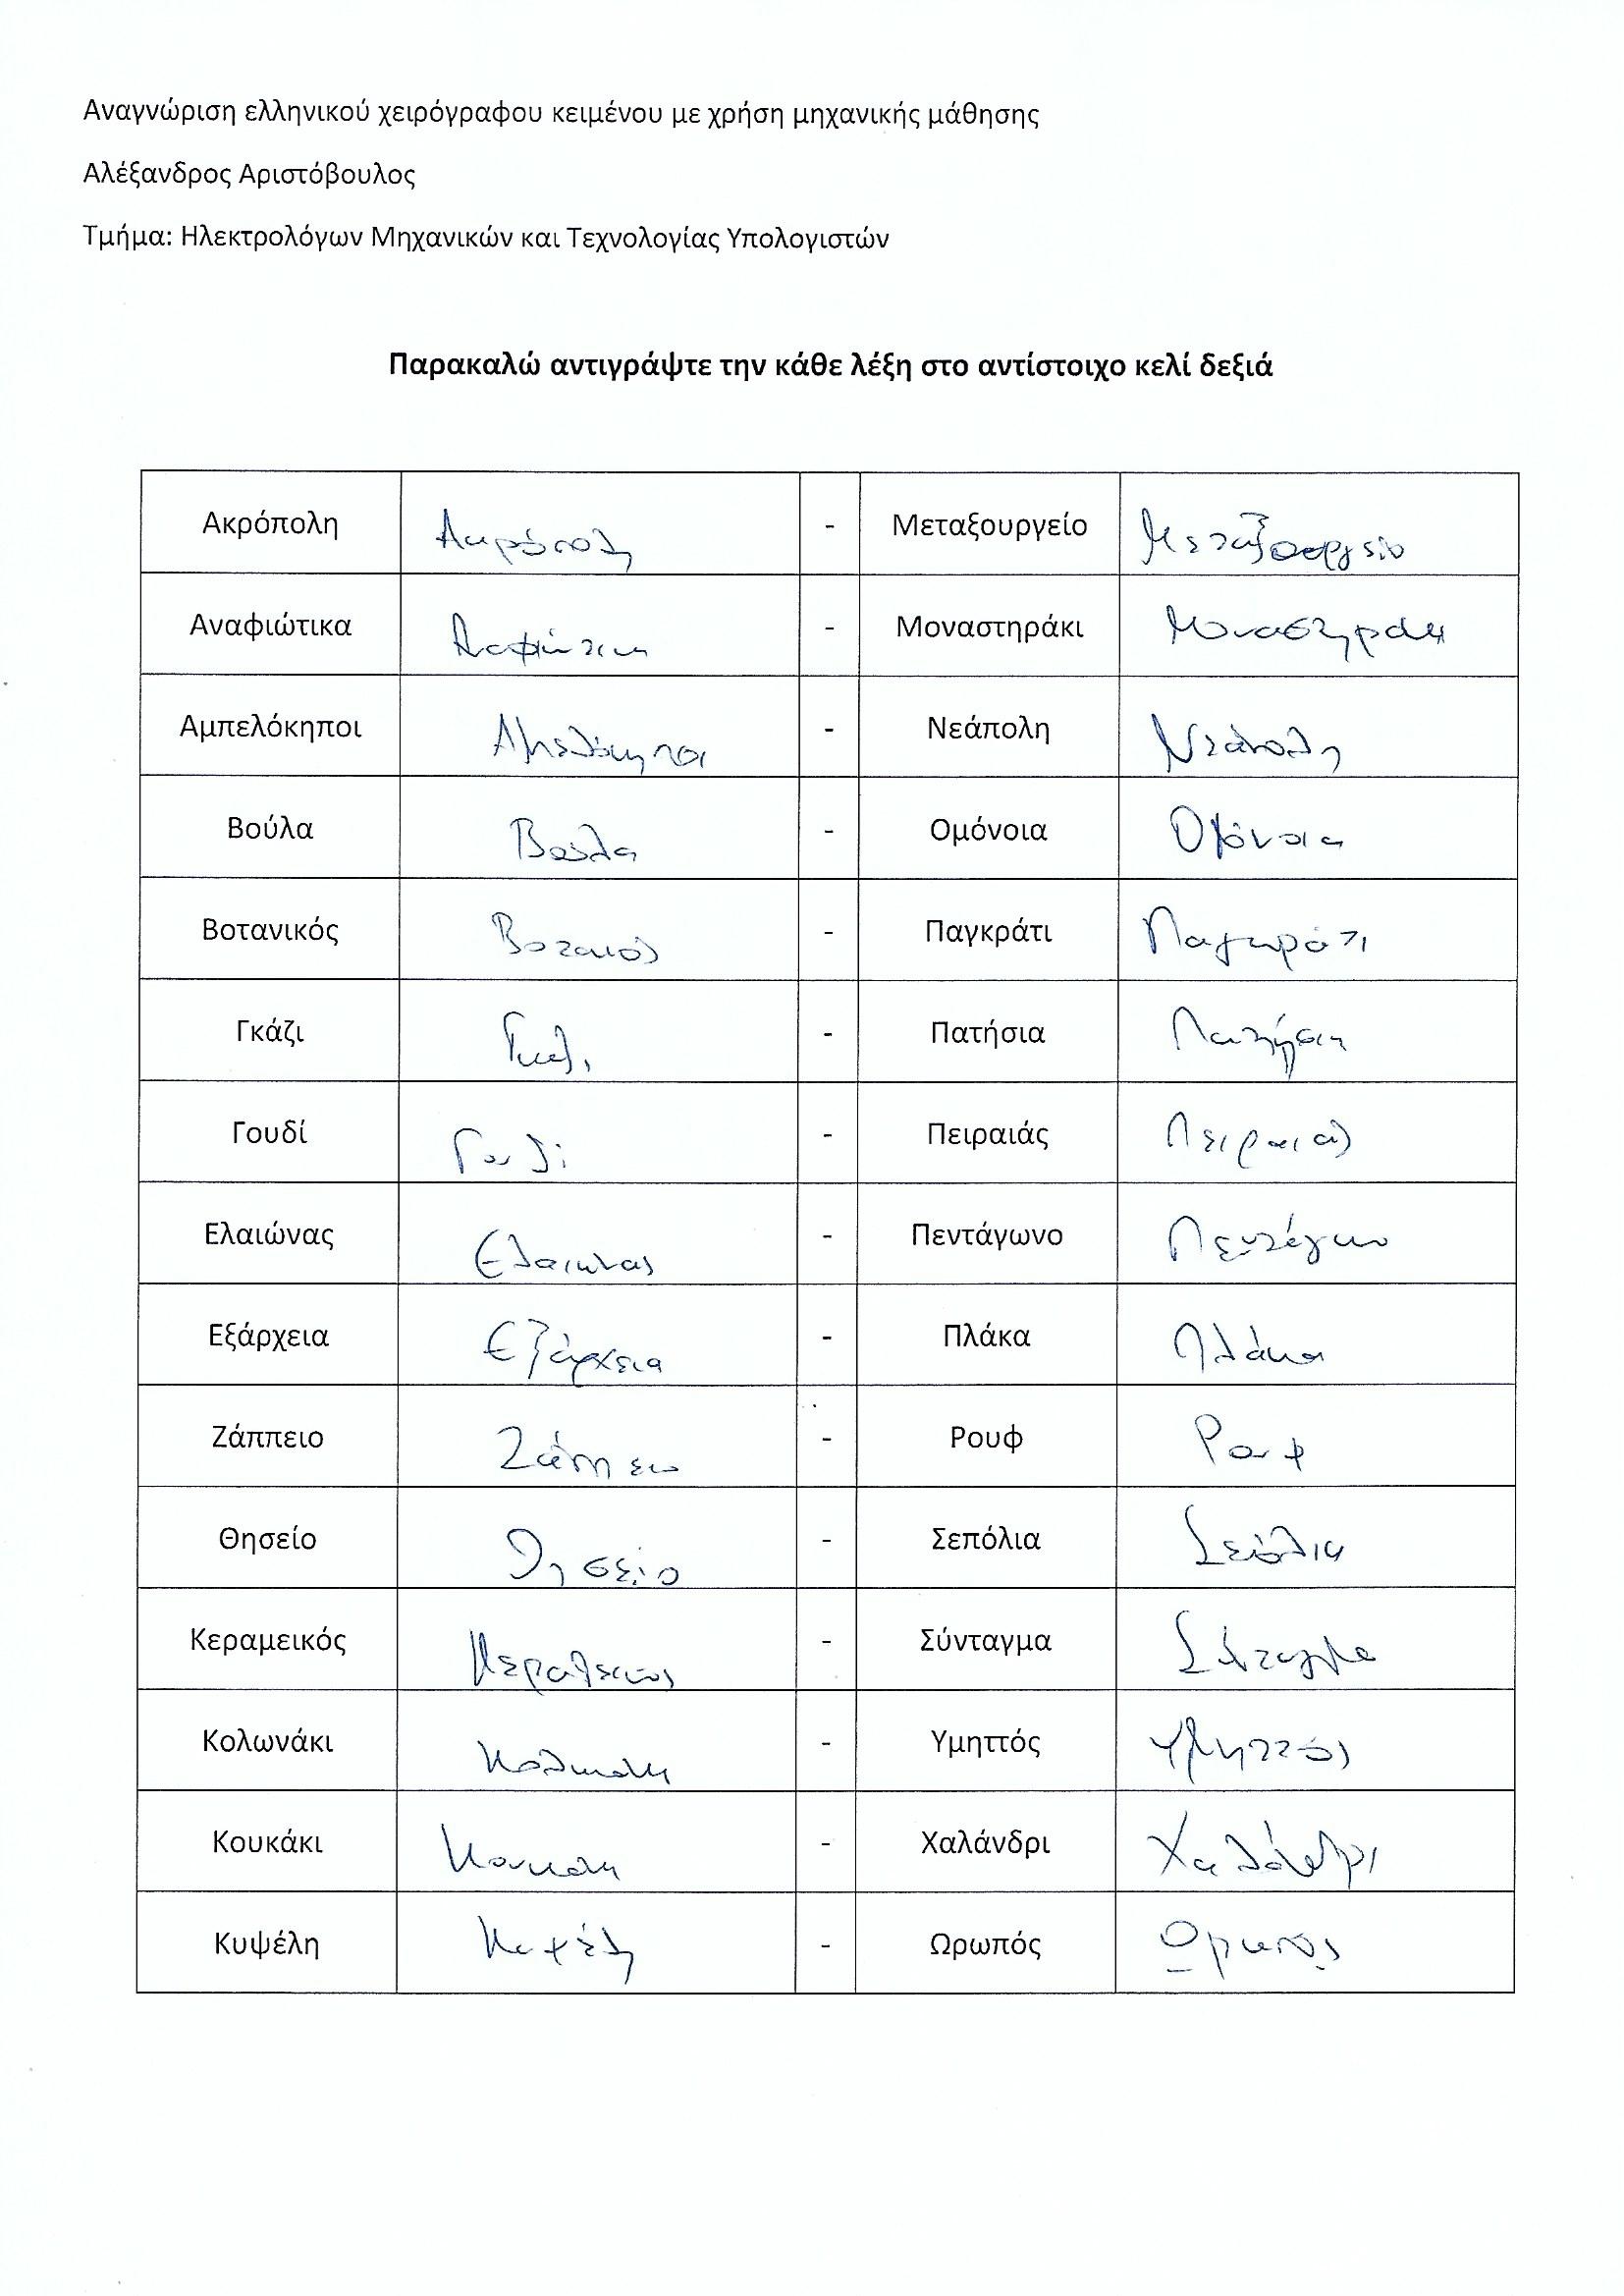 Αναγνώριση ελληνικού χειρόγραφου κειμένου με χρήση μηχανικής μάθησης
Αλέξανδρος Αριστόβουλος
Τμήμα: Ηλεκτρολόγων Μηχανικών και Τεχνολογίας Υπολογιστών
Παρακαλώ αντιγράψτε την κάθε λέξη στο αντίστοιχο κελί δεξιά
Ακρόπολη Ακρόπολη - Μεταξουργείο Μεταξουργείο
Αναφιώτικα Αναφιώτικα - Μοναστηράκι Μοναστηράκι
Αμπελόκηποι Αμπελόκηποι - Νεάπολη Νεάπολη
Βούλα Βούλα - Ομόνοια Ομόνοια
Βοτανικός Βοτανικός - Παγκράτι Παγκράτι
Γκάζι Γκάζι - Πατήσια Πατήσια
Γουδί Γουδί - Πειραιάς Πειραιάς
Ελαιώνας Ελαιωνας - Πεντάγωνο Πεντάγωνο
Εξάρχεια Εξάρχεια - Πλάκα Πλάκα
Ζάππειο Ζάππειο - Ρουφ Ρουφ
Θησείο Θησείο - Σεπόλια Σεπόλια
Κεραμεικός Κεραμεικός - Σύνταγμα Σύνταγμα
Κολωνάκι Κολωνάκι - Υμηττός Υμηττός
Κουκάκι Κουκάκι - Χαλάνδρι Χαλάνδρι
Κυψέλη Κυψέλη - Ωρωπός Ωρωπός